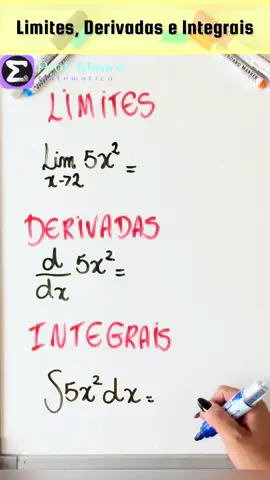 Limites, Derivadas e Integrais
LIMITES
Lim 5x² =
x→2
DERIVADAS
d/dx 5x² =
INTEGRAIS
∫5x²dx =